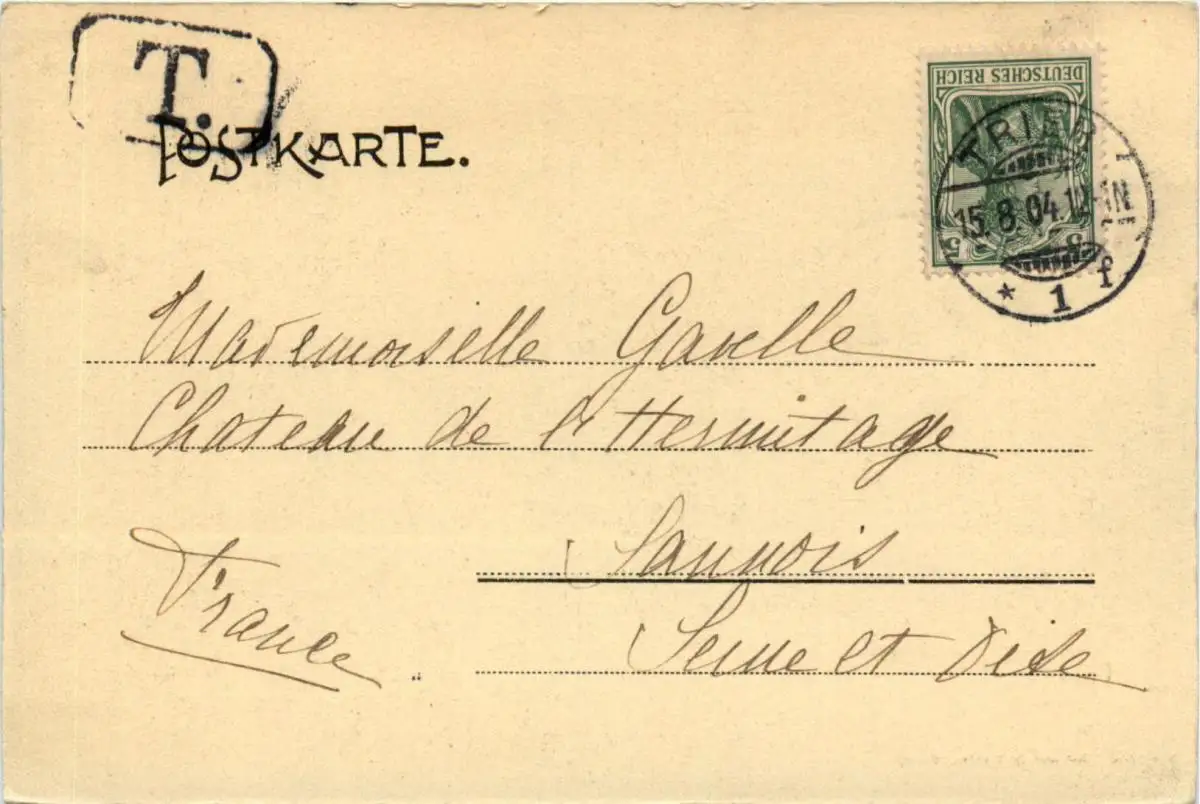 T.
POSTKARTE.
DEUTSCHES REICH
5 5
TRIER 1
15.8.04.12-1N
* 1 f
Mademoiselle Gavelle
Chateau de l'Hermitage
Sannois
Seine et Oise
France